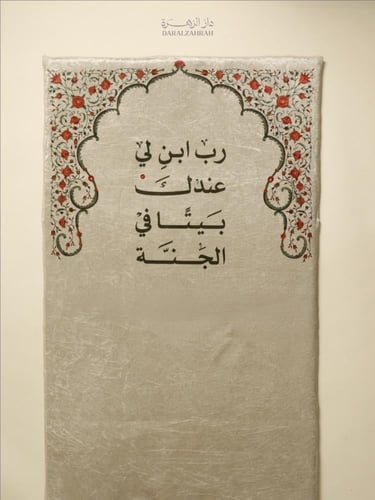 دار الزهرة
DARALZAHRAH
رب ابنِ لي
عندكَ
بَيتًا فيْ
الجَـنـَّـة